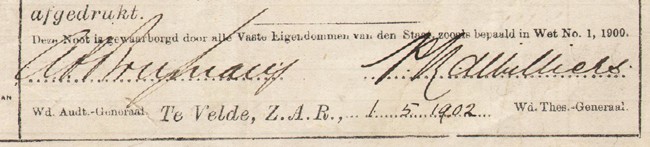 afgedrukt.
Deze Noot is gewaarborgd door alle Vaste Eigendommen van den Staat, zooals bepaald in Wet No. 1, 1900.
AN
Wd. Audt.-Generaal. Te Velde, Z. A. R., 1 5 1902 Wd. Thes.-Generaal.